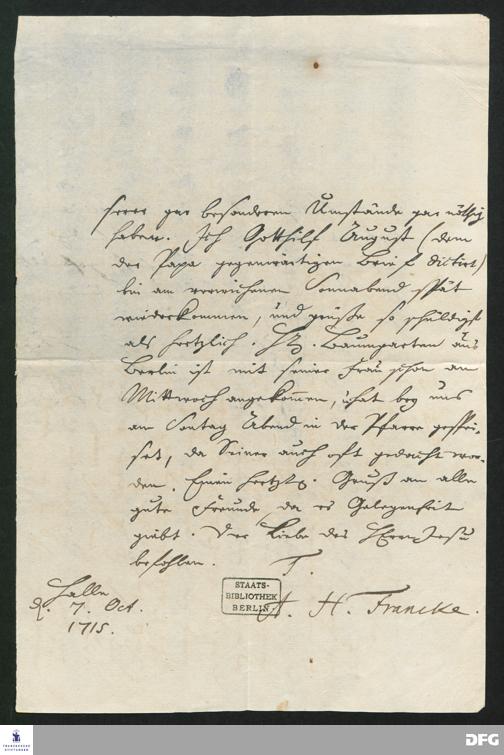 ferer gar besonderen Umstände gar nöthig
haben. Ich Gotthilf August (dem
der Papa gegenwärtigen Brief dictirt)
bin am verwichenen Sonnabend spät
wiederkommen, und grüße so schuldigst
als hertzlich. Hr. Baumgarten aus
Berlin ist mit seiner Frau schon am
Mittwoch angekommen, u. hat bey uns
am Sontag Abend in der Pfarre gespei-
set, da Seiner auch oft gedacht wor-
den. Einen hertzl. Gruß an alle
gute Freunde, da es Gelegenheit
giebt. Der Liebe des HErrn Jesu
befohlen. T.
Halle
d. 7. Oct.
1715.
A. H. Francke.
STAATS-
BIBLIOTHEK
BERLIN
FRANCKESCHE
STIFTUNGEN
DFG